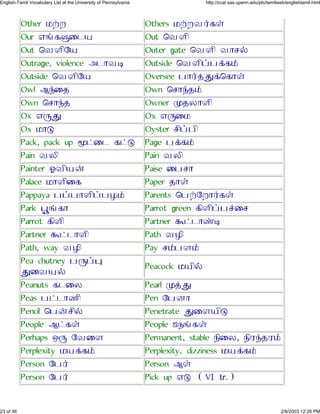 English-Tamil Vocabulary List at the University of Pennsylvania http://ccat.sas.upenn.edu/plc/tamilweb/englishtaml.html
Other மற்ற Others மற்றவர்கள்
Our எங்களுடைய Out வெளி
Out வெளியே Outer gate வெளி வாசல்
Outrage, violence அடாவடி Outside வெளிப்பக்கம்
Outside வெளியே Oversee பார்த்துக்கொள்
Owl ஆந்தை Own சொந்தம்
Own சொந்த Owner முதலாளி
Ox எருது Ox எருமை
Ox மாடு Oyster சிப்பி
Pack, pack up மூட்டை கட்டு Page பக்கம்
Pain வலி Pain வலி
Painter ஓவியன் Paise பைசா
Palace மாளிகை Paper தாள்
Pappaya பப்பாளிப்பழம் Parents பெற்றோர்கள்
Park பூங்கா Parrot green கிளிப்பச்சை
Parrot கிளி Partner கூட்டாண்டி
Partner கூட்டாளி Path வழி
Path, way வழி Pay சம்பளம்
Pea chutney பருப்பு துவையல் Peacock மயில்
Peanuts கடலை Pearl முத்து
Peas பட்டாணி Pen பேனா
Pencil பென்சில் Penetrate துளையிடு
People ஆட்கள் People ஐருங்கள்
Perhaps ஒரு வேளை Permanent, stable நிலை, நிரந்தரம்
Perplexity மயக்கம் Perplexity, dizziness மயக்கம்
Person பேர் Person ஆள்
Person பேர் Pick up எடு ( VI tr. )
23 of 36 2/6/2003 12:26 PM